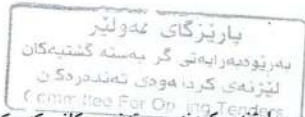 پارێزگای هەولێر
بەڕێوەبەرایەتی گر بەستە گشتیەکان
لێژنەی کردنەوەی تەندەرەکان
Committee For Op ing Tenders